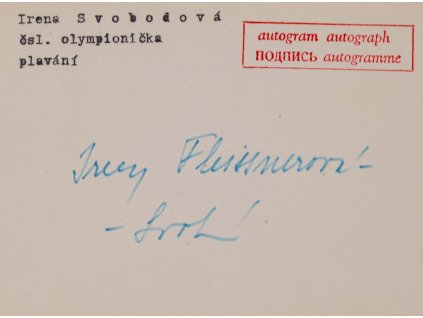 Irena Svobodová
čsl. olympionička
plavání
autogram autograph
ПОДПИСЬ autogramme
Fleissnerová-